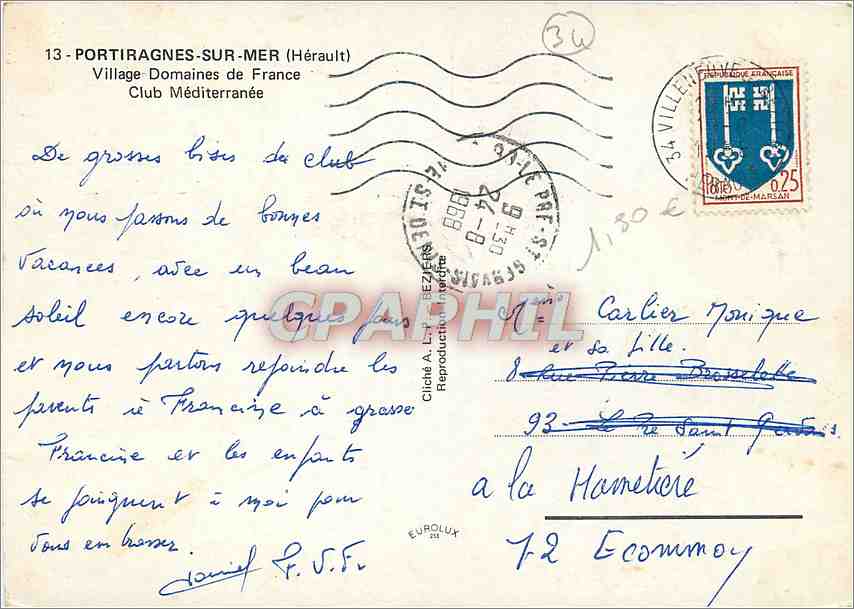 34
13 - PORTIRAGNES-SUR-MER (Hérault)
Village Domaines de France
Club Méditerranée
De grosses bises du club
où nous passons de bonnes
vacances, avec un beau
soleil encore quelques jours
et nous partons rejoindre les
parents à Francine à grasse
Francine et les enfants
se joignent à moi pour
vous embrasser.
Daniel F. V. F.
93-LE PRE-ST-GERVAIS
9 H30
24-8
1968
SEINE-ST-DENIS
34 VILLENEUVE
REPUBLIQUE FRANÇAISE
POSTES 0,25
MONT-DE-MARSAN
1,30 €
Cliché A. L. P. BEZIERS
Reproduction Interdite
CPAPHIL
Mme Carlier Monique
et sa fille.
8 Rue Pierre Brossolette
93 - Le Pré Saint Gervais.
a la Hametière
72 Ecommoy
EUROLUX